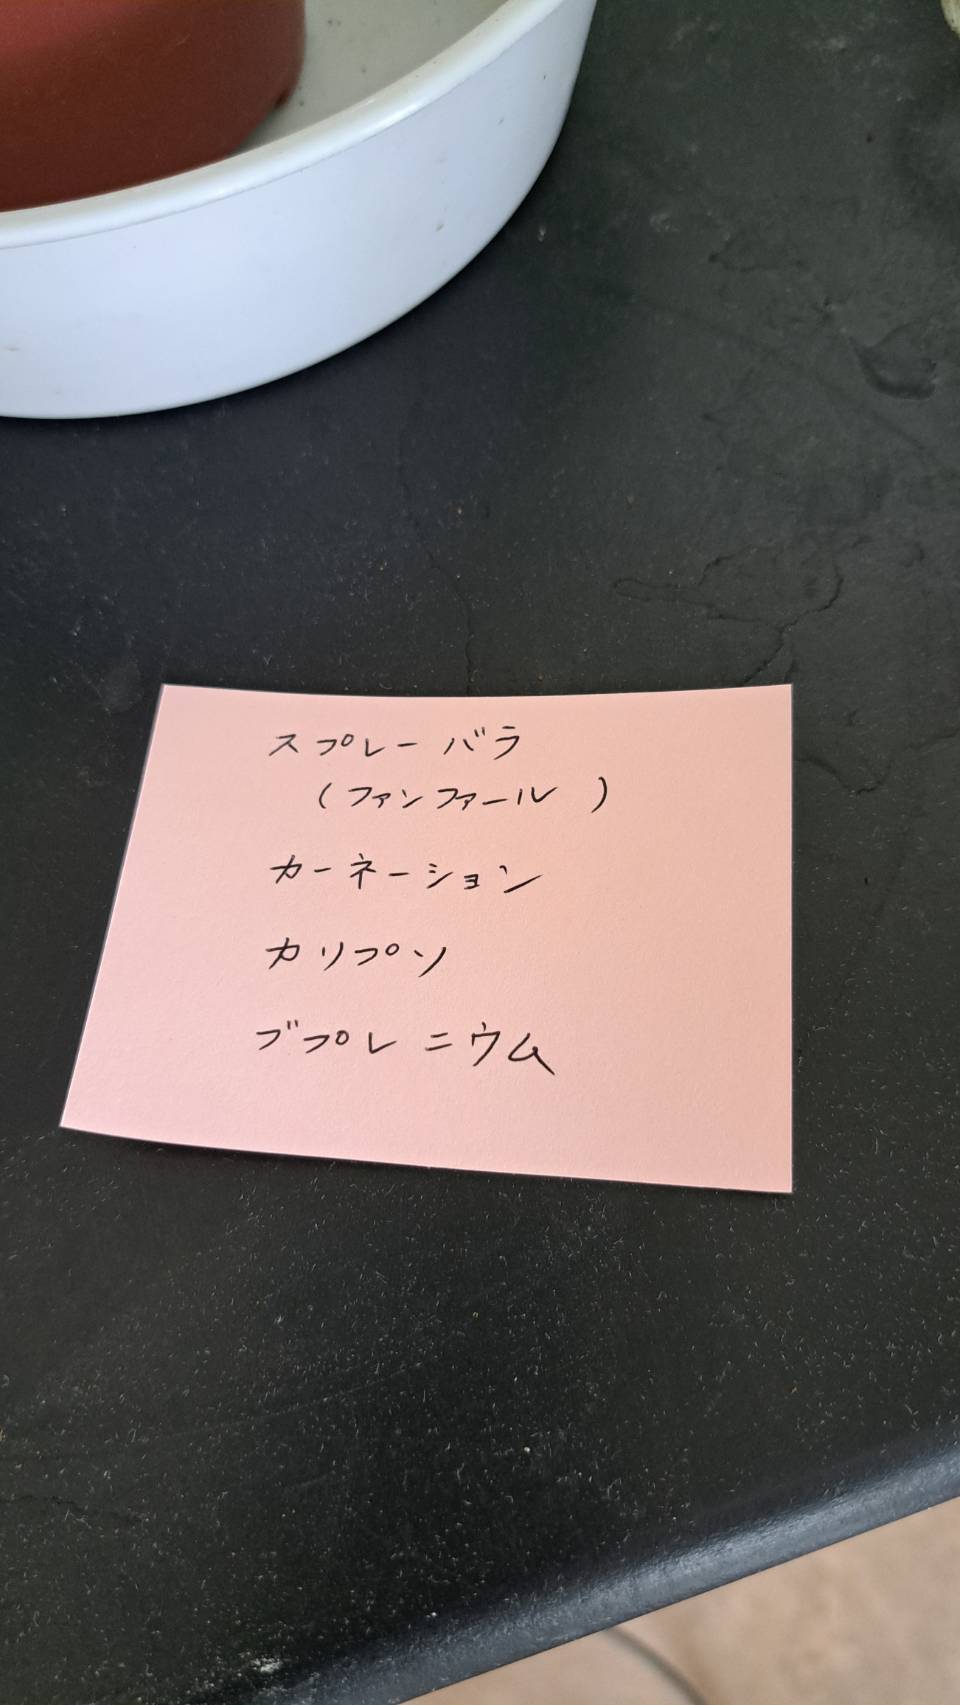 スプレーバラ
(ファンファール)
カーネーション
カリプソ
ブプレニウム